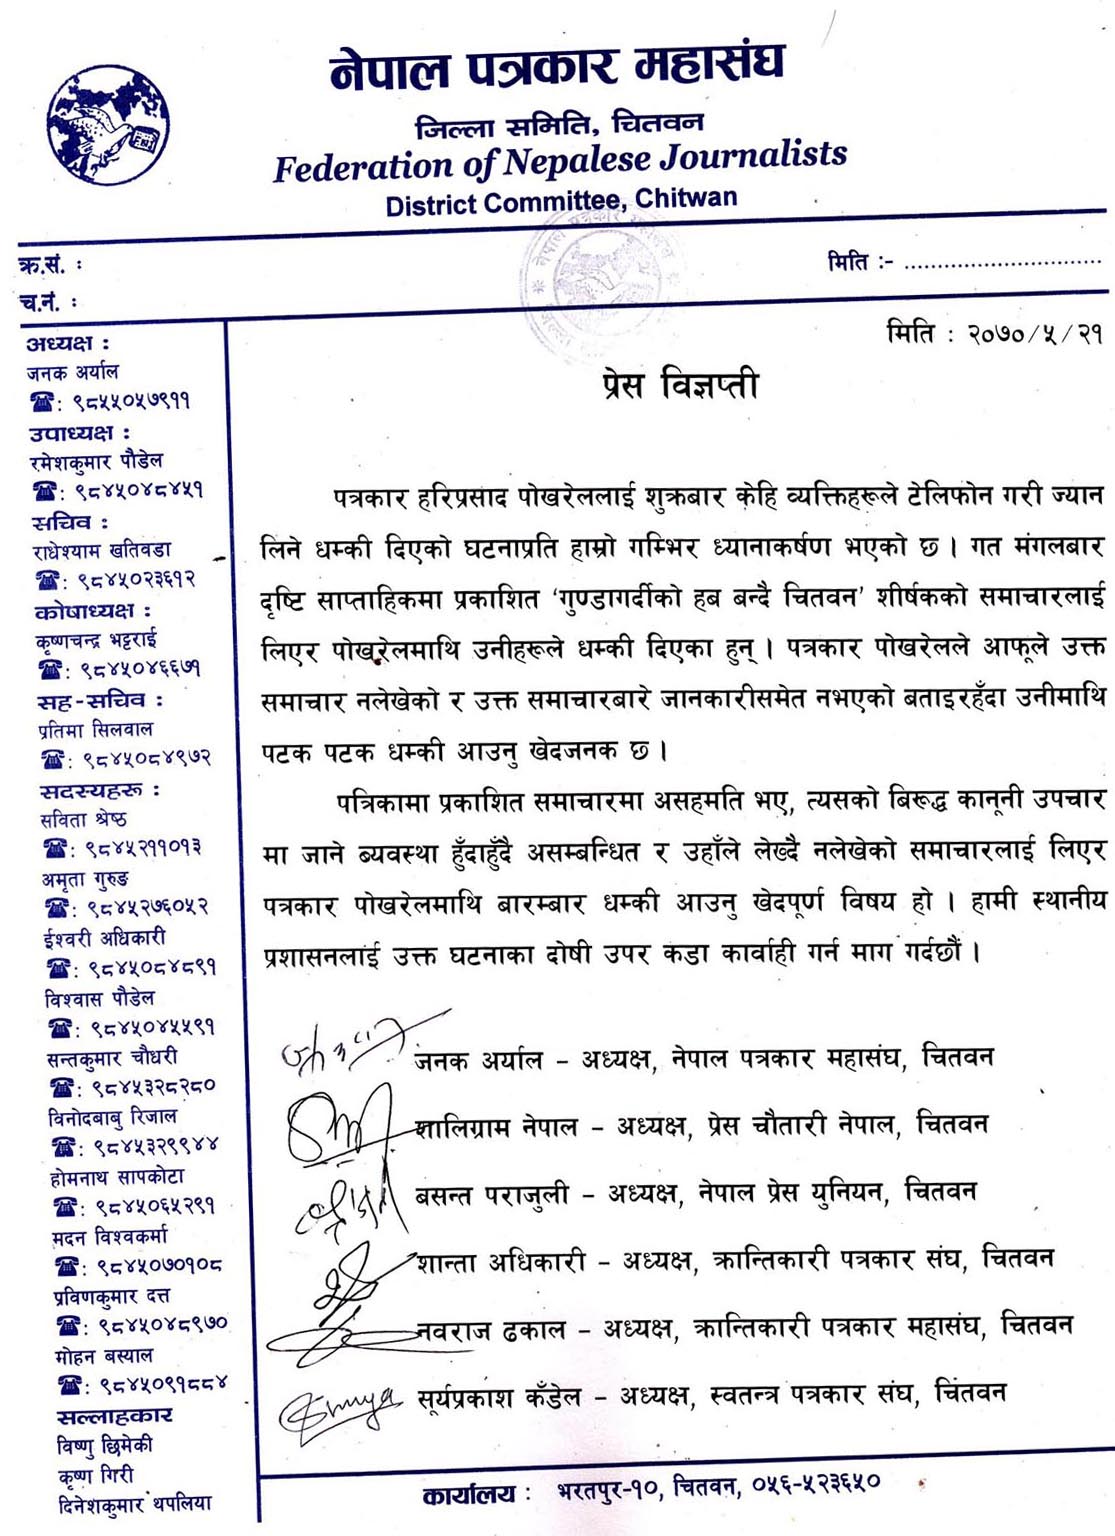 नेपाल पत्रकार महासंघ
जिल्ला समिति, चितवन
Federation of Nepalese Journalists
District Committee, Chitwan
क्र.सं. :
च.नं. :
मिति :- ..............................
अध्यक्ष :
जनक अर्याल
☎: ९८५५०५७९११
उपाध्यक्ष :
रमेशकुमार पौडेल
☎: ९८४५०४८४५१
सचिव :
राधेश्याम खतिवडा
☎: ९८४५०२३६१२
कोषाध्यक्ष :
कृष्णचन्द्र भट्टराई
☎: ९८४५०४६६७१
सह-सचिव :
प्रतिमा सिलवाल
☎: ९८४५०८४९७२
सदस्यहरू :
सविता श्रेष्ठ
☎: ९८४५२११०१३
अमृता गुरुङ
☎: ९८४५२७६०५२
ईश्वरी अधिकारी
☎: ९८४५०८४८९१
विश्वास पौडेल
☎: ९८४५०४५५९१
सन्तकुमार चौधरी
☎: ९८४५३२८२८०
विनोदबाबु रिजाल
☎: ९८४५३२९९४४
होमनाथ सापकोटा
☎: ९८४५०६५२९१
मदन विश्वकर्मा
☎: ९८४५०७०१०८
प्रविणकुमार दत्त
☎: ९८४५०४८९७०
मोहन बस्याल
☎: ९८४५०९१८८४
सल्लाहकार
विष्णु छिमेकी
कृष्ण गिरी
दिनेशकुमार थपलिया
मिति : २०७०/५/२१
प्रेस विज्ञप्ती
पत्रकार हरिप्रसाद पोखरेललाई शुक्रबार केहि व्यक्तिहरूले टेलिफोन गरी ज्यान
लिने धम्की दिएको घटनाप्रति हाम्रो गम्भिर ध्यानाकर्षण भएको छ । गत मंगलबार
दृष्टि साप्ताहिकमा प्रकाशित ‘गुण्डागर्दीको हब बन्दै चितवन’ शीर्षकको समाचारलाई
लिएर पोखरेलमाथि उनीहरूले धम्की दिएका हुन् । पत्रकार पोखरेलले आफूले उक्त
समाचार नलेखेको र उक्त समाचारबारे जानकारीसमेत नभएको बताइरहँदा उनीमाथि
पटक पटक धम्की आउनु खेदजनक छ ।
पत्रिकामा प्रकाशित समाचारमा असहमति भए, त्यसको बिरूद्ध कानूनी उपचार
मा जाने ब्यवस्था हुँदाहुँदै असम्बन्धित र उहाँले लेख्दै नलेखेको समाचारलाई लिएर
पत्रकार पोखरेलमाथि बारम्बार धम्की आउनु खेदपूर्ण विषय हो । हामी स्थानीय
प्रशासनलाई उक्त घटनाका दोषी उपर कडा कार्वाही गर्न माग गर्दछौं ।
जनक अर्याल – अध्यक्ष, नेपाल पत्रकार महासंघ, चितवन
शालिग्राम नेपाल – अध्यक्ष, प्रेस चौतारी नेपाल, चितवन
बसन्त पराजुली – अध्यक्ष, नेपाल प्रेस युनियन, चितवन
शान्ता अधिकारी – अध्यक्ष, क्रान्तिकारी पत्रकार संघ, चितवन
नवराज ढकाल – अध्यक्ष, क्रान्तिकारी पत्रकार महासंघ, चितवन
सूर्यप्रकाश कँडेल – अध्यक्ष, स्वतन्त्र पत्रकार संघ, चितवन
कार्यालय : भरतपुर-१०, चितवन, ०५६-५२३६५०